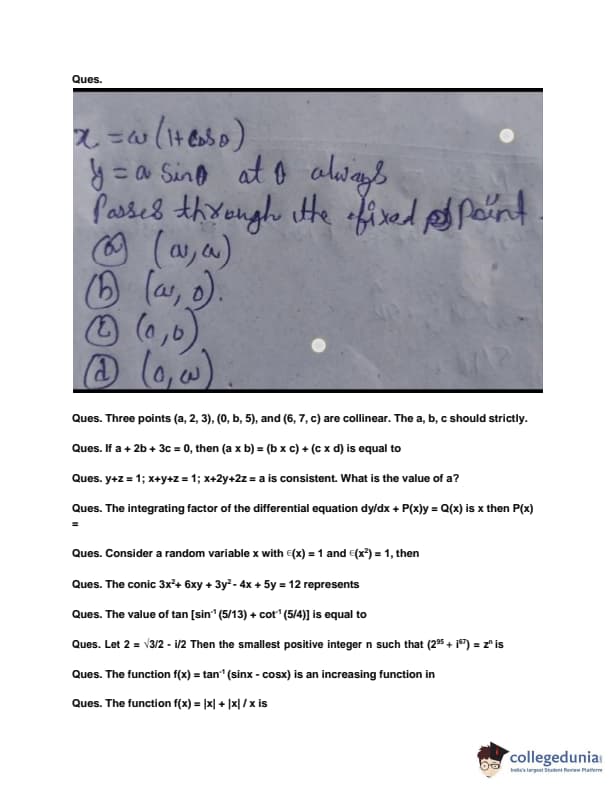 Ques.
x = a (1+ cos θ)
y = a sin θ at θ always
Passes through the fixed point
(a) (a, a)
(b) (a, 0).
(c) (0, b)
(d) (0, a).
Ques. Three points (a, 2, 3), (0, b, 5), and (6, 7, c) are collinear. The a, b, c should strictly.
Ques. If a + 2b + 3c = 0, then (a x b) = (b x c) + (c x d) is equal to
Ques. y+z = 1; x+y+z = 1; x+2y+2z = a is consistent. What is the value of a?
Ques. The integrating factor of the differential equation dy/dx + P(x)y = Q(x) is x then P(x)
=
Ques. Consider a random variable x with ∈(x) = 1 and ∈(x²) = 1, then
Ques. The conic 3x²+ 6xy + 3y² - 4x + 5y = 12 represents
Ques. The value of tan [sin⁻¹ (5/13) + cot⁻¹ (5/4)] is equal to
Ques. Let 2 = √3/2 - i/2 Then the smallest positive integer n such that (2⁹⁵ + i⁶⁷) = zⁿ is
Ques. The function f(x) = tan⁻¹ (sinx - cosx) is an increasing function in
Ques. The function f(x) = |x| + |x| / x is
collegedunia
India's largest Student Review Platform